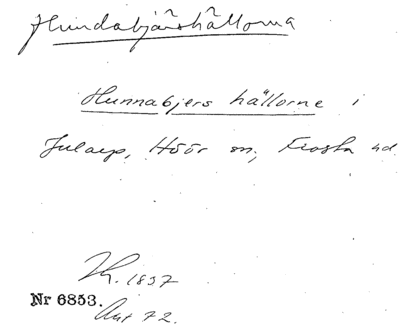 Hundabjärshällorna
Hunnabjers hällorne i
Julaep, Höör sn, Frosta hd
Th. 1837
Nr 6853.
Ant 72.